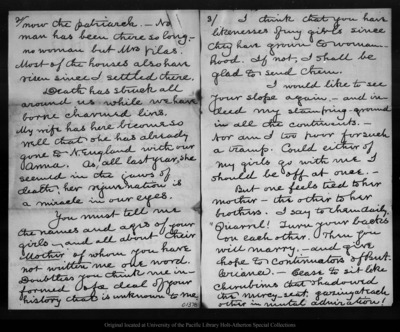 2/
now the patriarch. – No
man has been there so long. –
no woman but Mrs Vilas.
Most of the houses also have
risen since I settled there.
Death has struck all
around us while we have
borne charmed lives.
My wife has here become so
well that she has already
gone to N. England with our
Anna. As, all last year, she
seemed in the jaws of
death, her rejuvenation is
a miracle in our eyes.
You must tell me
the names and ages of your
girls – and all about their
Mother of whom you have
not written me one word.
Doubtless you think me in-
formed of a deal of your
history that is unknown to me.
3/
I think that you have
likenesses of my girls since
they have grown to woman-
hood. If not, I shall be
glad to send them.
I would like to see
your slope again, – and in-
deed my stamping ground
in all the continents. –
Nor am I too poor for such
a tramp. Could either of
my girls go with me I
should be off at once. –
But one feels tied to her
mother – the other to her
brothers. I say to them daily,
"Quarrel! Turn your backs
on each other. Then you
will marry, – and give
hope to Continuators of But-
leriana. – Cease to sit like
cherubims that shadowed
the mercy-seat, gazing at each
other in mutual admiration!
Original located at University of the Pacific Library Holt-Atherton Special Collections